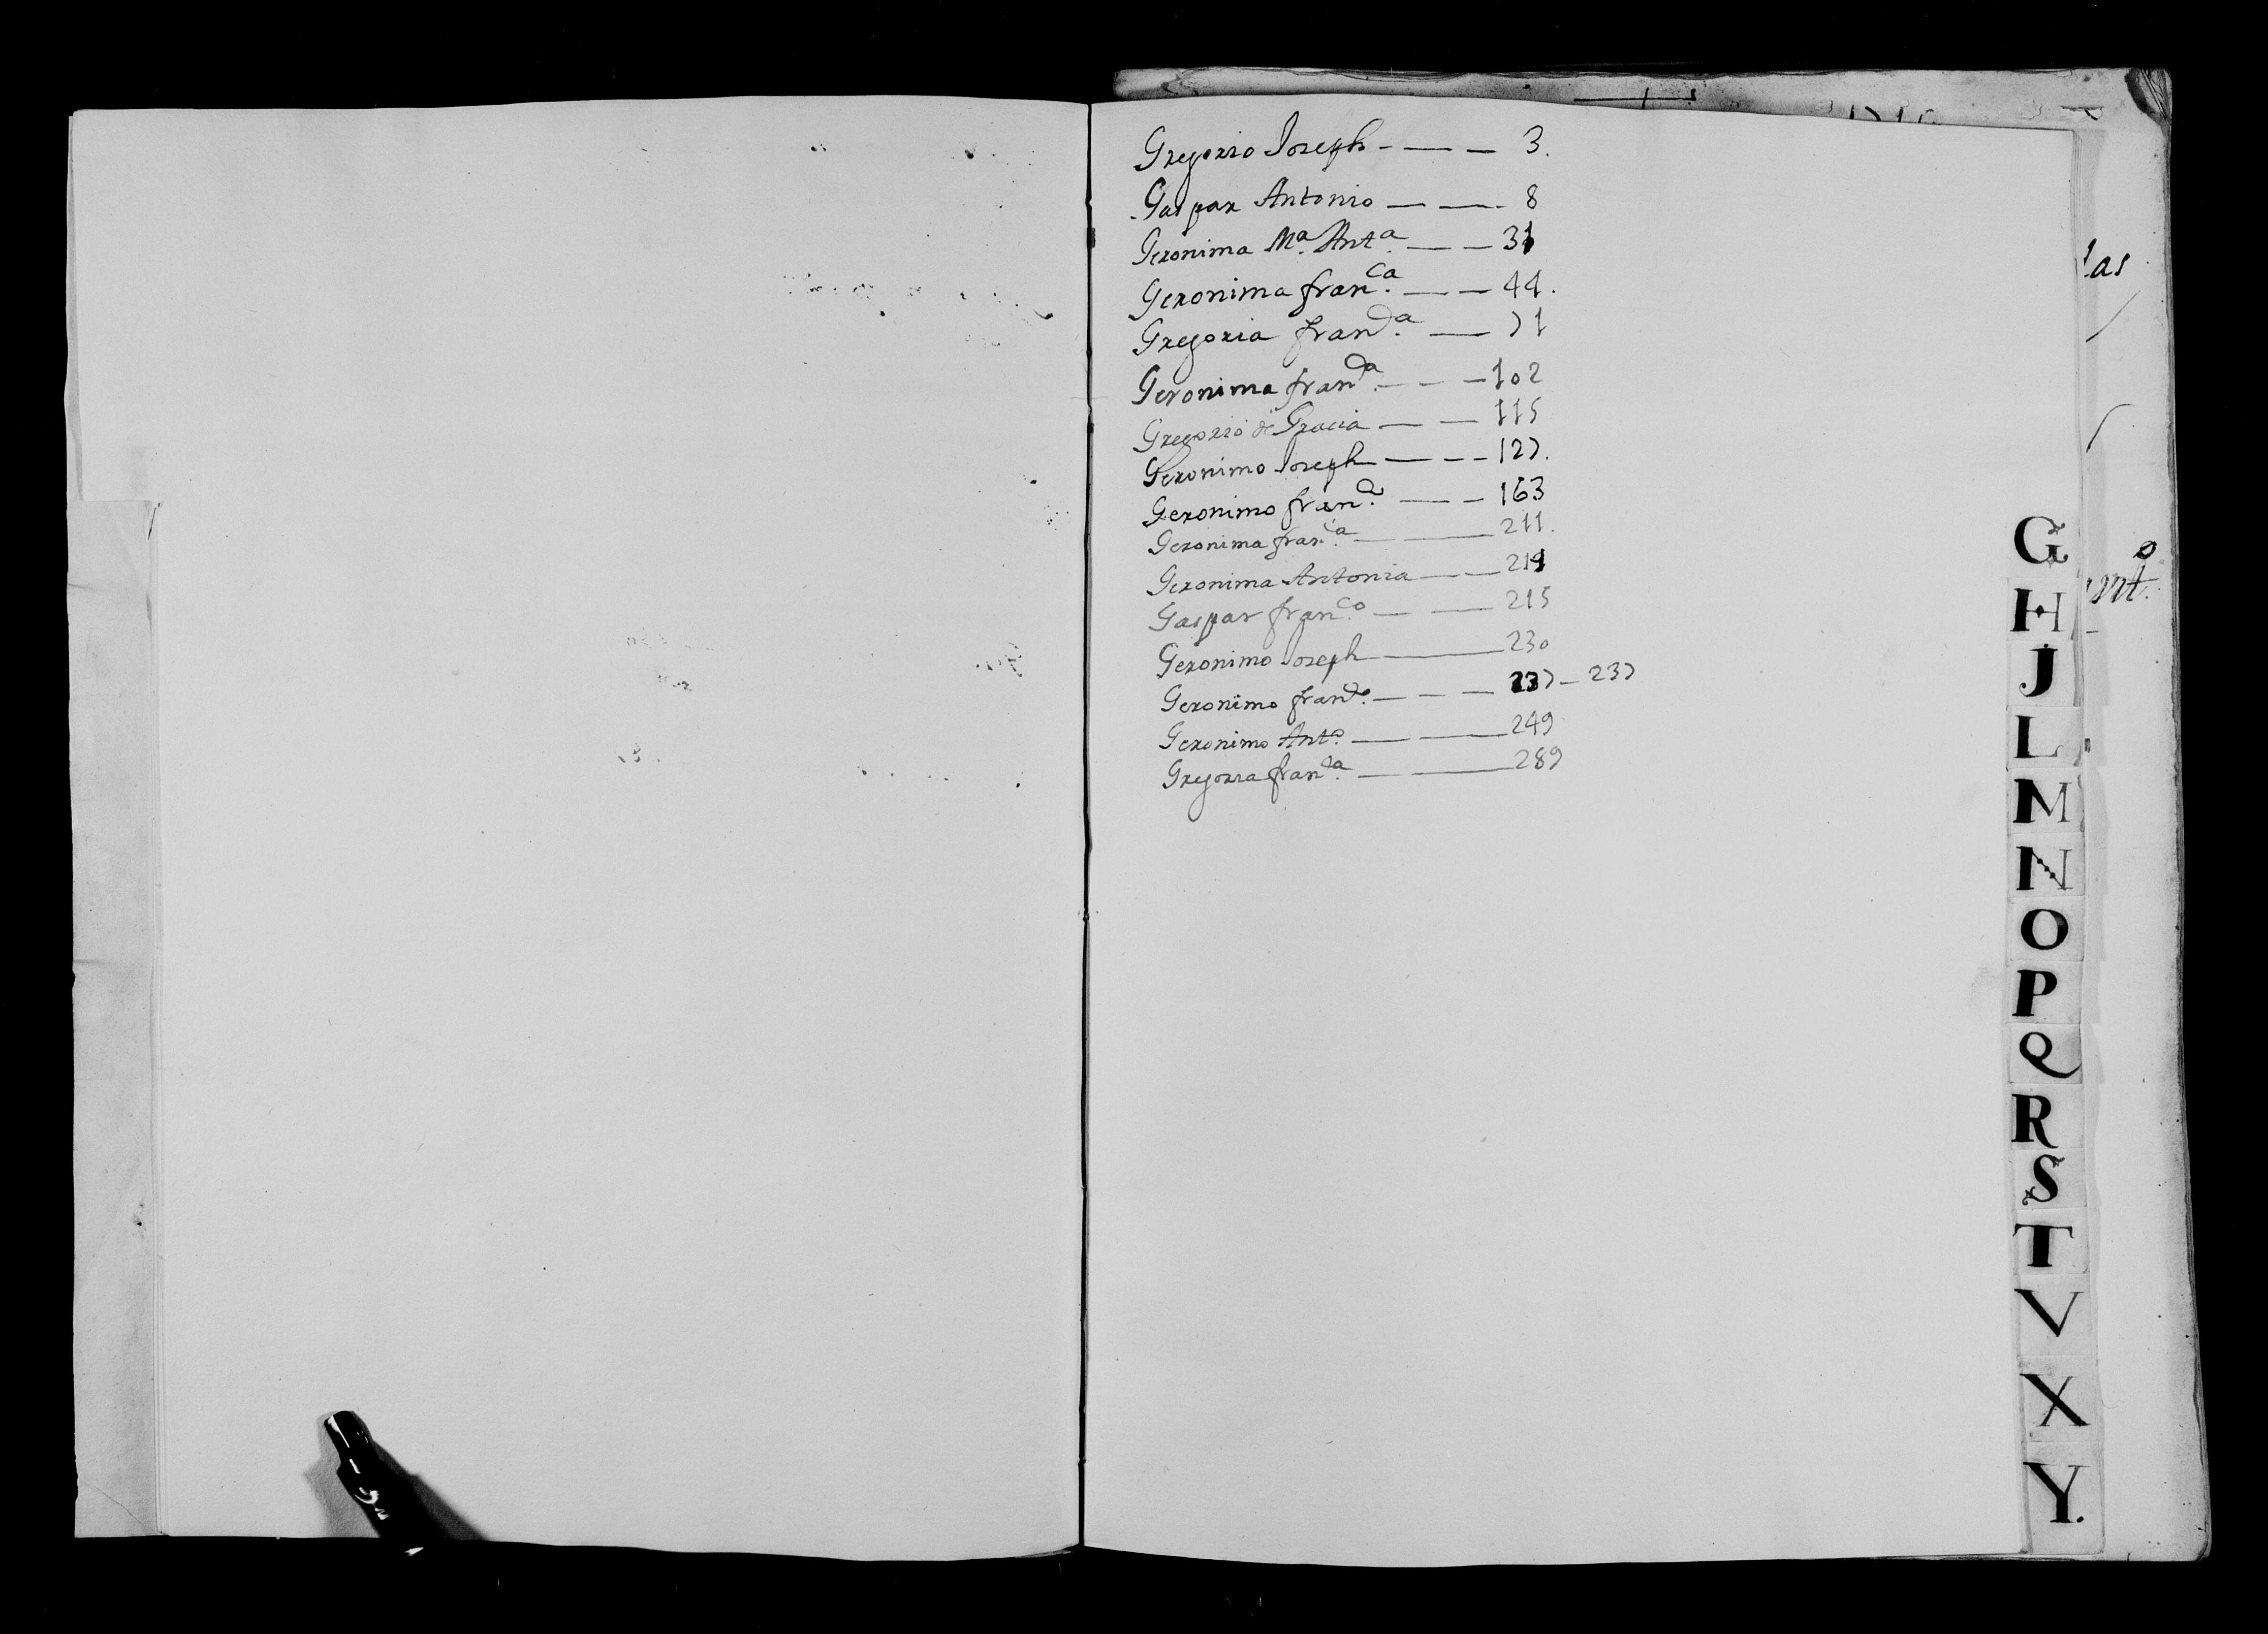 Gregorio Joseph - — — 3.
Gaspar Antonio — — - 8
Geronima Mª. Antª. — — 31
Geronima franca. — — 44.
Gregoria franca. — 71
Geronima franca. — - — 102
Gregorio de Gracia — — 115
Geronimo Joseph — - — 127.
Geronimo franco. — — 163
Geronima franca. — — 211.
Geronima Antonia — — 214
Gaspar franco. — — 215
Geronimo Joseph — 230
Geronimo franco. — - — 237 — 237
Geronimo Anto. — — 249
Gregoria franca. — — 289
G
H
J
L
M
N
O
P
Q
R
S
T
V
X
Y.